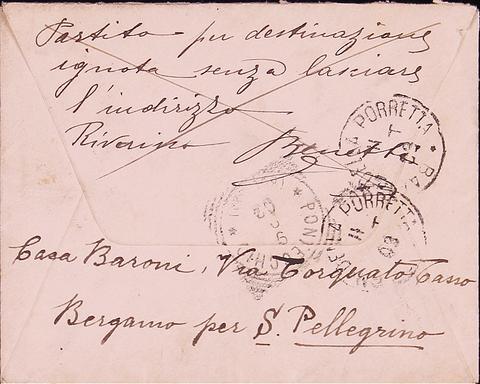 Partito per destinazione
ignota senza lasciare
l'indirizzo
PORRETTA
PORRETTA
03
Casa Baroni, Via Torquato Tasso
Bergamo per S. Pellegrino